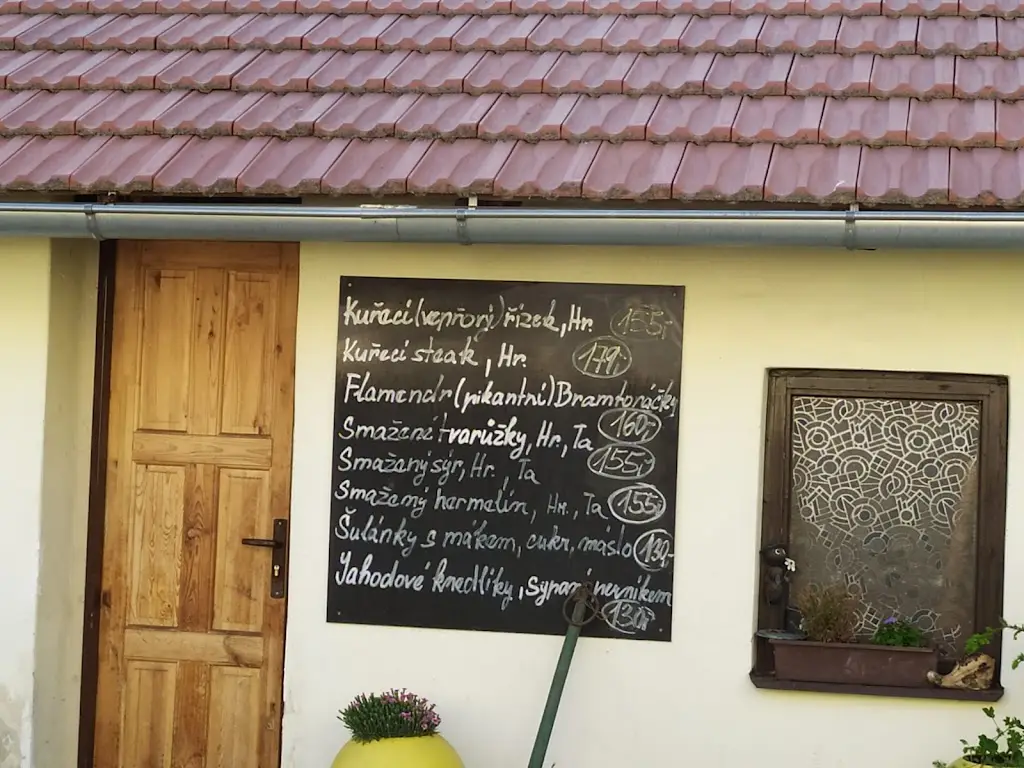 Kuřecí (vepřový) řízek, Hr. 155,-
Kuřecí steak, Hr. 179,-
Flamendr (pikantní) Bramboráčky
160,-
Smažené tvarůžky, Hr., Ta
155,-
Smažený sýr, Hr., Ta
Smažený hermelín, Hr., Ta 155,-
Šulánky s mákem, cukr, máslo 130,-
Jahodové knedlíky, sypané perníkem
130,-